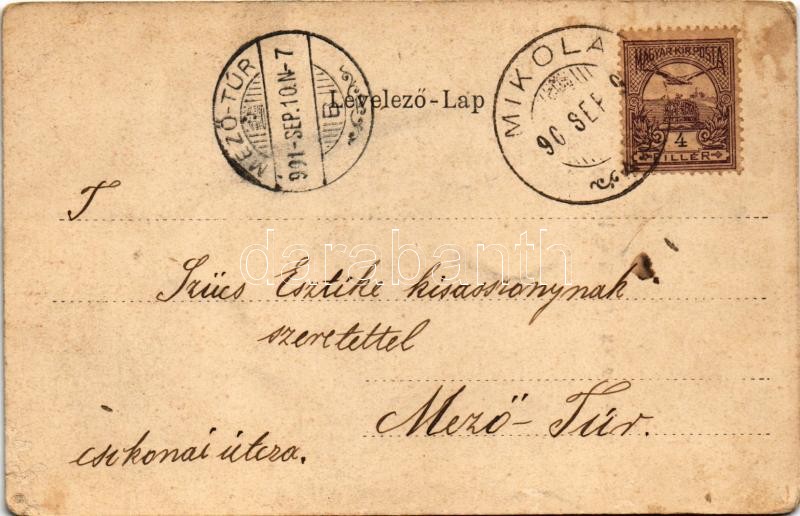 MEZŐ-TÚR
901-SEP.10.N-7
Levelező-Lap
MIKOLA
90 SEP 9
MAGYAR·KIR·POSTA
4
FILLÉR
T
Szücs Esztike kisasszonynak
szeretettel
Mező-Túr.
csokonai útcza.
darabanth